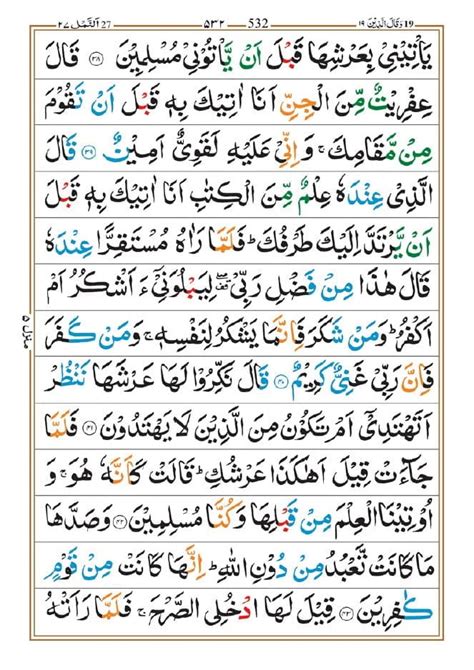 19 وَقَالَ الَّذِیْنَ ۱۹ 532 ۵۳۲ 27 اَلنَّمْل ۲۷
یَاْتِیْنِیْ بِعَرْشِهَا قَبْلَ اَنْ یَّاْتُوْنِیْ مُسْلِمِیْنَ ﴿۳۸﴾ قَالَ
عِفْرِیْتٌ مِّنَ الْجِنِّ اَنَا اٰتِیْكَ بِهٖ قَبْلَ اَنْ تَقُوْمَ
مِنْ مَّقَامِكَ ۚ وَ اِنِّیْ عَلَیْهِ لَقَوِیٌّ اَمِیْنٌ ﴿۳۹﴾ قَالَ
الَّذِیْ عِنْدَهٗ عِلْمٌ مِّنَ الْكِتٰبِ اَنَا اٰتِیْكَ بِهٖ قَبْلَ
اَنْ یَّرْتَدَّ اِلَیْكَ طَرْفُكَ ؕ فَلَمَّا رَاٰهُ مُسْتَقِرًّا عِنْدَهٗ
قَالَ هٰذَا مِنْ فَضْلِ رَبِّیْ ۖ۫ لِیَبْلُوَنِیْۤ ءَاَشْكُرُ اَمْ
اَكْفُرُ ؕ وَ مَنْ شَكَرَ فَاِنَّمَا یَشْكُرُ لِنَفْسِهٖ ۚ وَ مَنْ كَفَرَ
فَاِنَّ رَبِّیْ غَنِیٌّ كَرِیْمٌ ﴿۴۰﴾ قَالَ نَكِّرُوْا لَهَا عَرْشَهَا نَنْظُرْ
اَتَهْتَدِیْۤ اَمْ تَكُوْنُ مِنَ الَّذِیْنَ لَا یَهْتَدُوْنَ ﴿۴۱﴾ فَلَمَّا
جَآءَتْ قِیْلَ اَهٰكَذَا عَرْشُكِ ؕ قَالَتْ كَاَنَّهٗ هُوَ ۚ وَ
اُوْتِیْنَا الْعِلْمَ مِنْ قَبْلِهَا وَ كُنَّا مُسْلِمِیْنَ ﴿۴۲﴾ وَ صَدَّهَا
مَا كَانَتْ تَّعْبُدُ مِنْ دُوْنِ اللّٰهِ ؕ اِنَّهَا كَانَتْ مِنْ قَوْمٍ
كٰفِرِیْنَ ﴿۴۳﴾ قِیْلَ لَهَا ادْخُلِی الصَّرْحَ ۚ فَلَمَّا رَاَتْهُ
منزل ۵